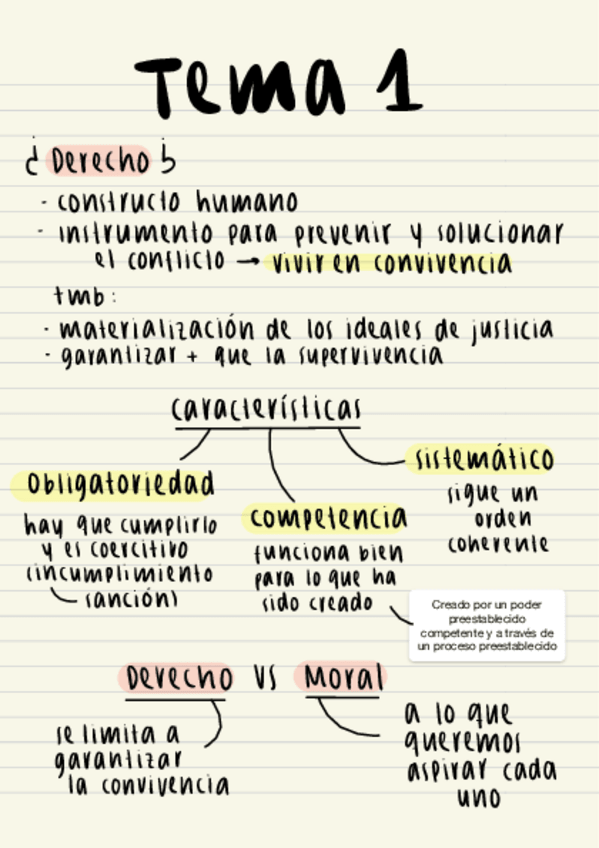 Tema 1
¿Derecho?
· constructo humano
· instrumento para prevenir y solucionar
el conflicto → vivir en convivencia
tmb:
· materialización de los ideales de justicia
· garantizar + que la supervivencia
características
obligatoriedad
hay que cumplirlo
y es coercitivo
(incumplimiento
sanción)
competencia
funciona bien
para lo que ha
sido creado
Creado por un poder
preestablecido
competente y a través de
un proceso preestablecido
sistemático
sigue un
orden
coherente
Derecho VS Moral
se limita a
garantizar
la convivencia
a lo que
queremos
aspirar cada
uno